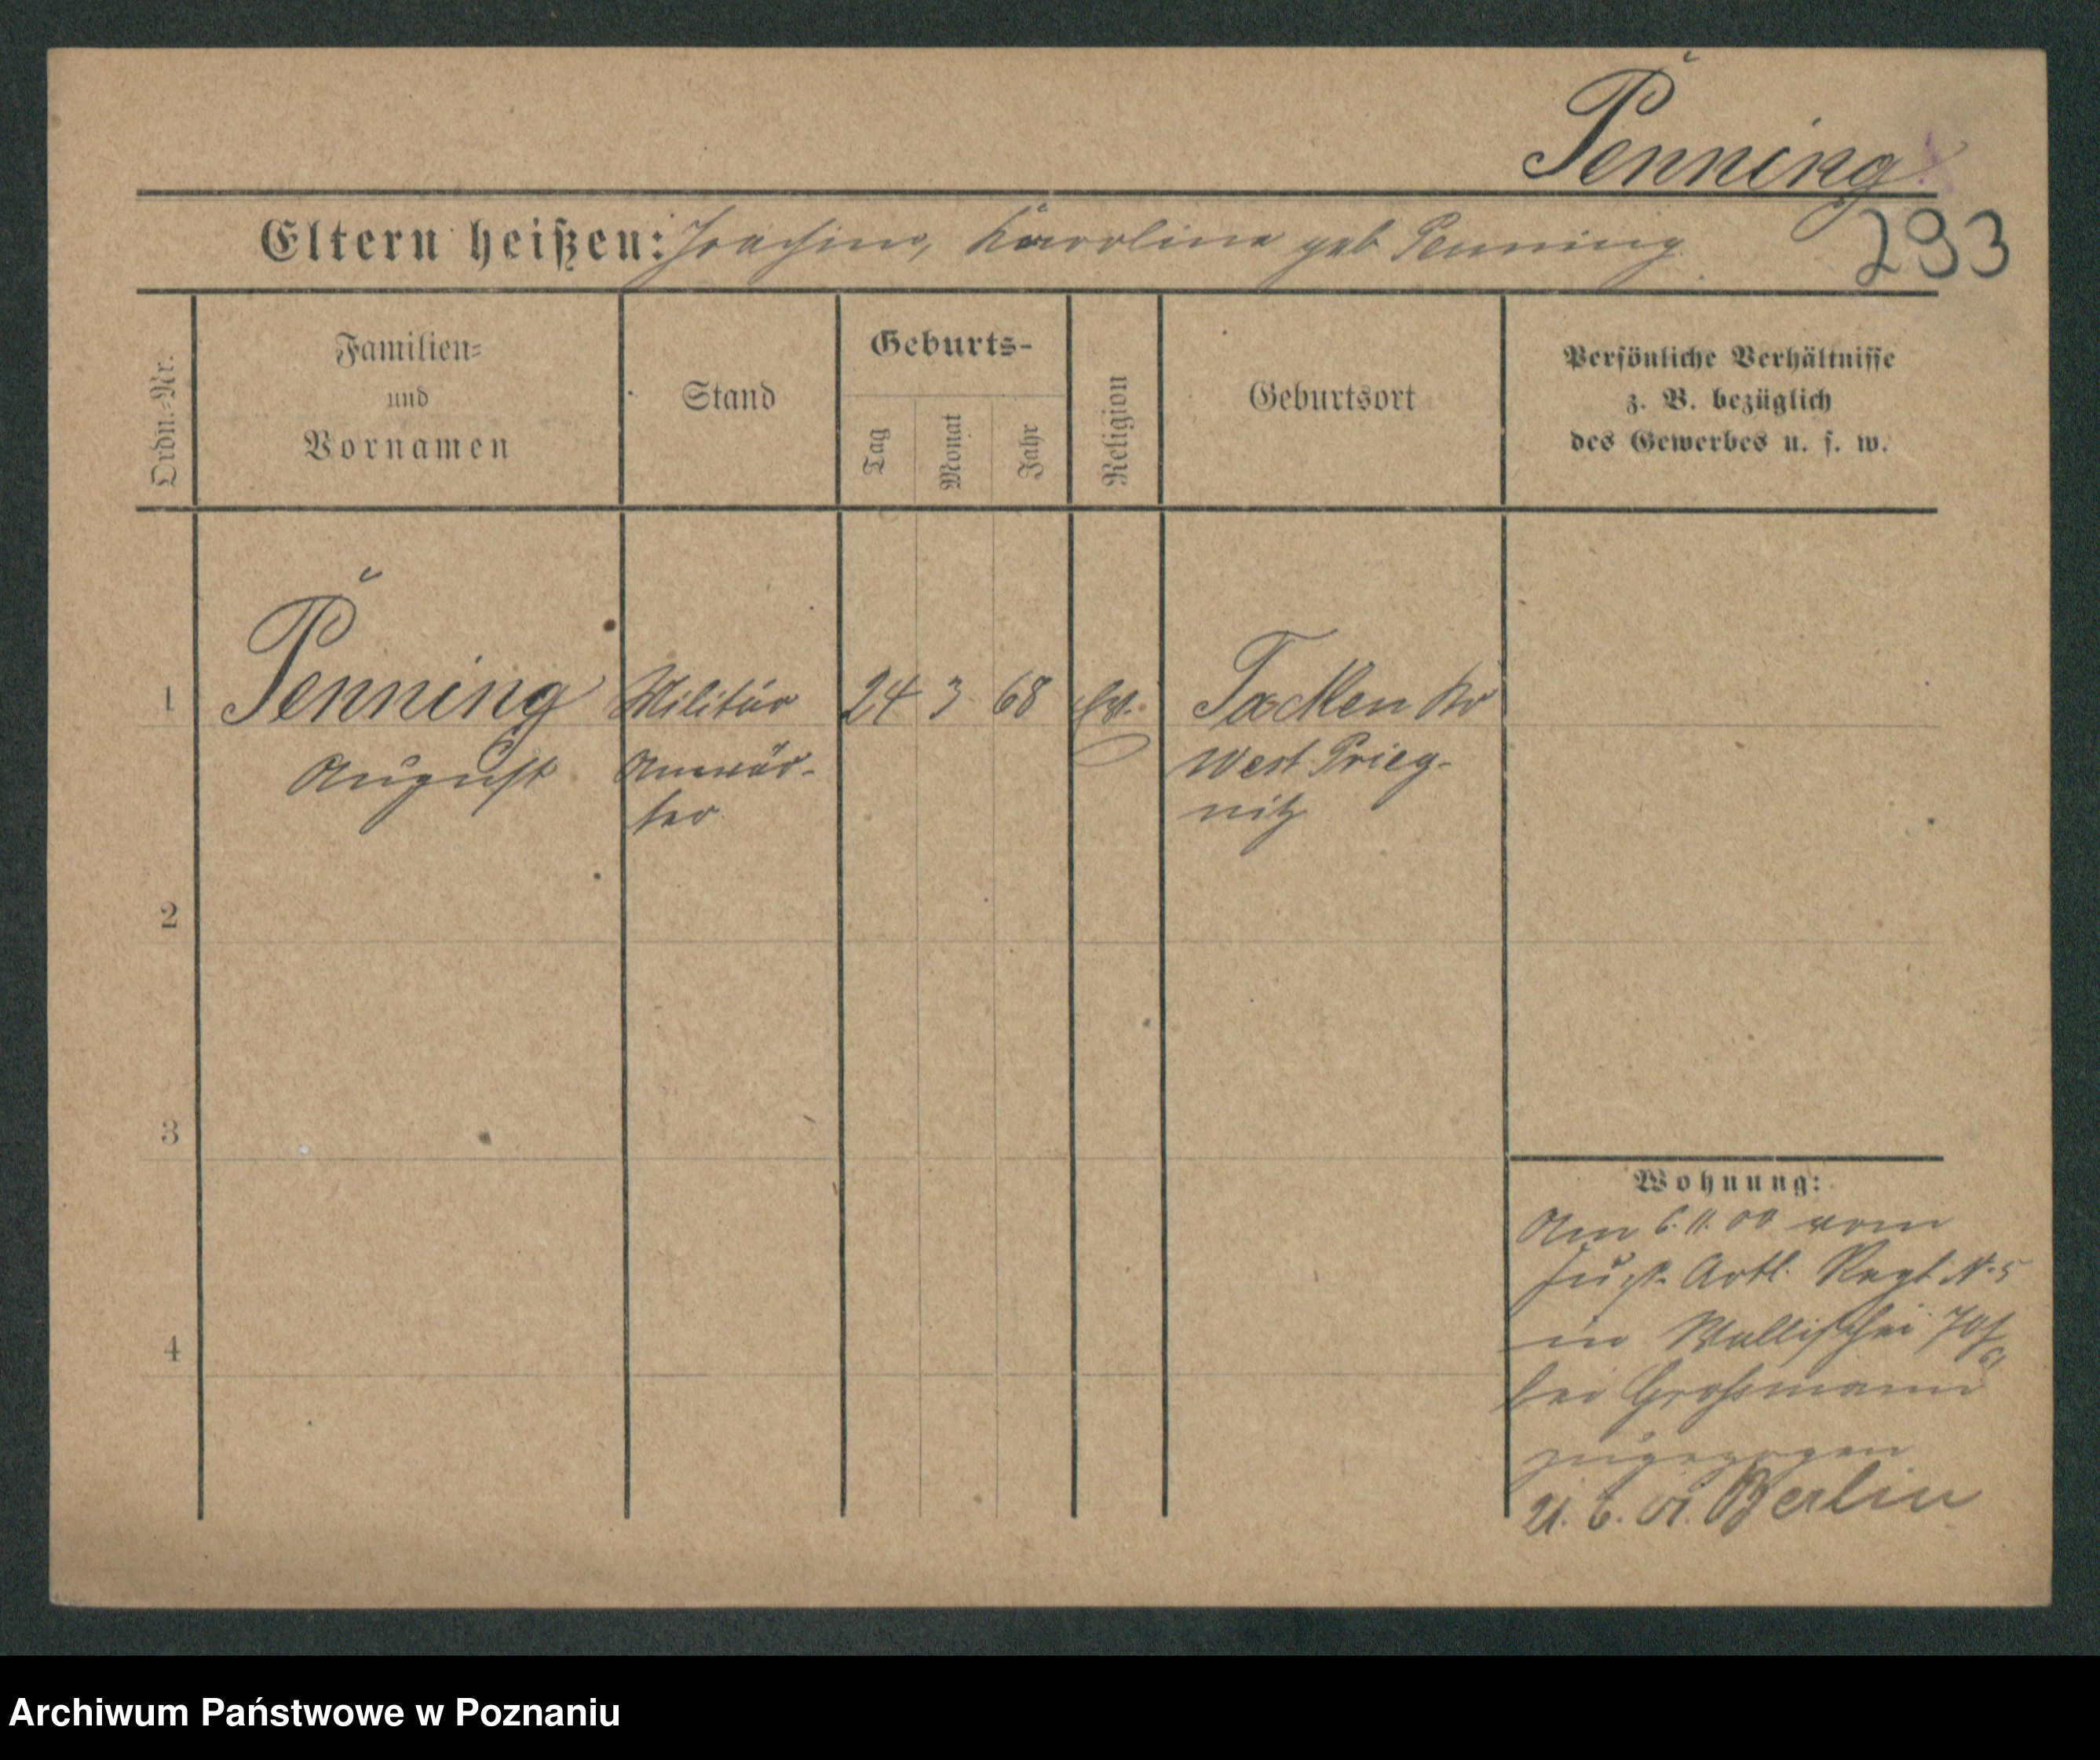 Penning
293
Eltern heißen: Joachim, Karoline geb Penning
Ordn.-Nr.
Familien-
und
Vornamen
Stand
Geburts-
Tag
Monat
Jahr
Religion
Geburtsort
Persönliche Verhältnisse
z. B. bezüglich
des Gewerbes u. s. w.
1 Penning Militär 24 3 68 Ev. Tacken Kr
August Anwär- West Prieg-
ter nitz
2
3
4
Wohnung:
Am 6. 11. 00 vom
Fußt. Artl. Regt. N. 5
in Wallischei
bei Großmann
zugezogen
21. 6. 01. Berlin
Archiwum Państwowe w Poznaniu